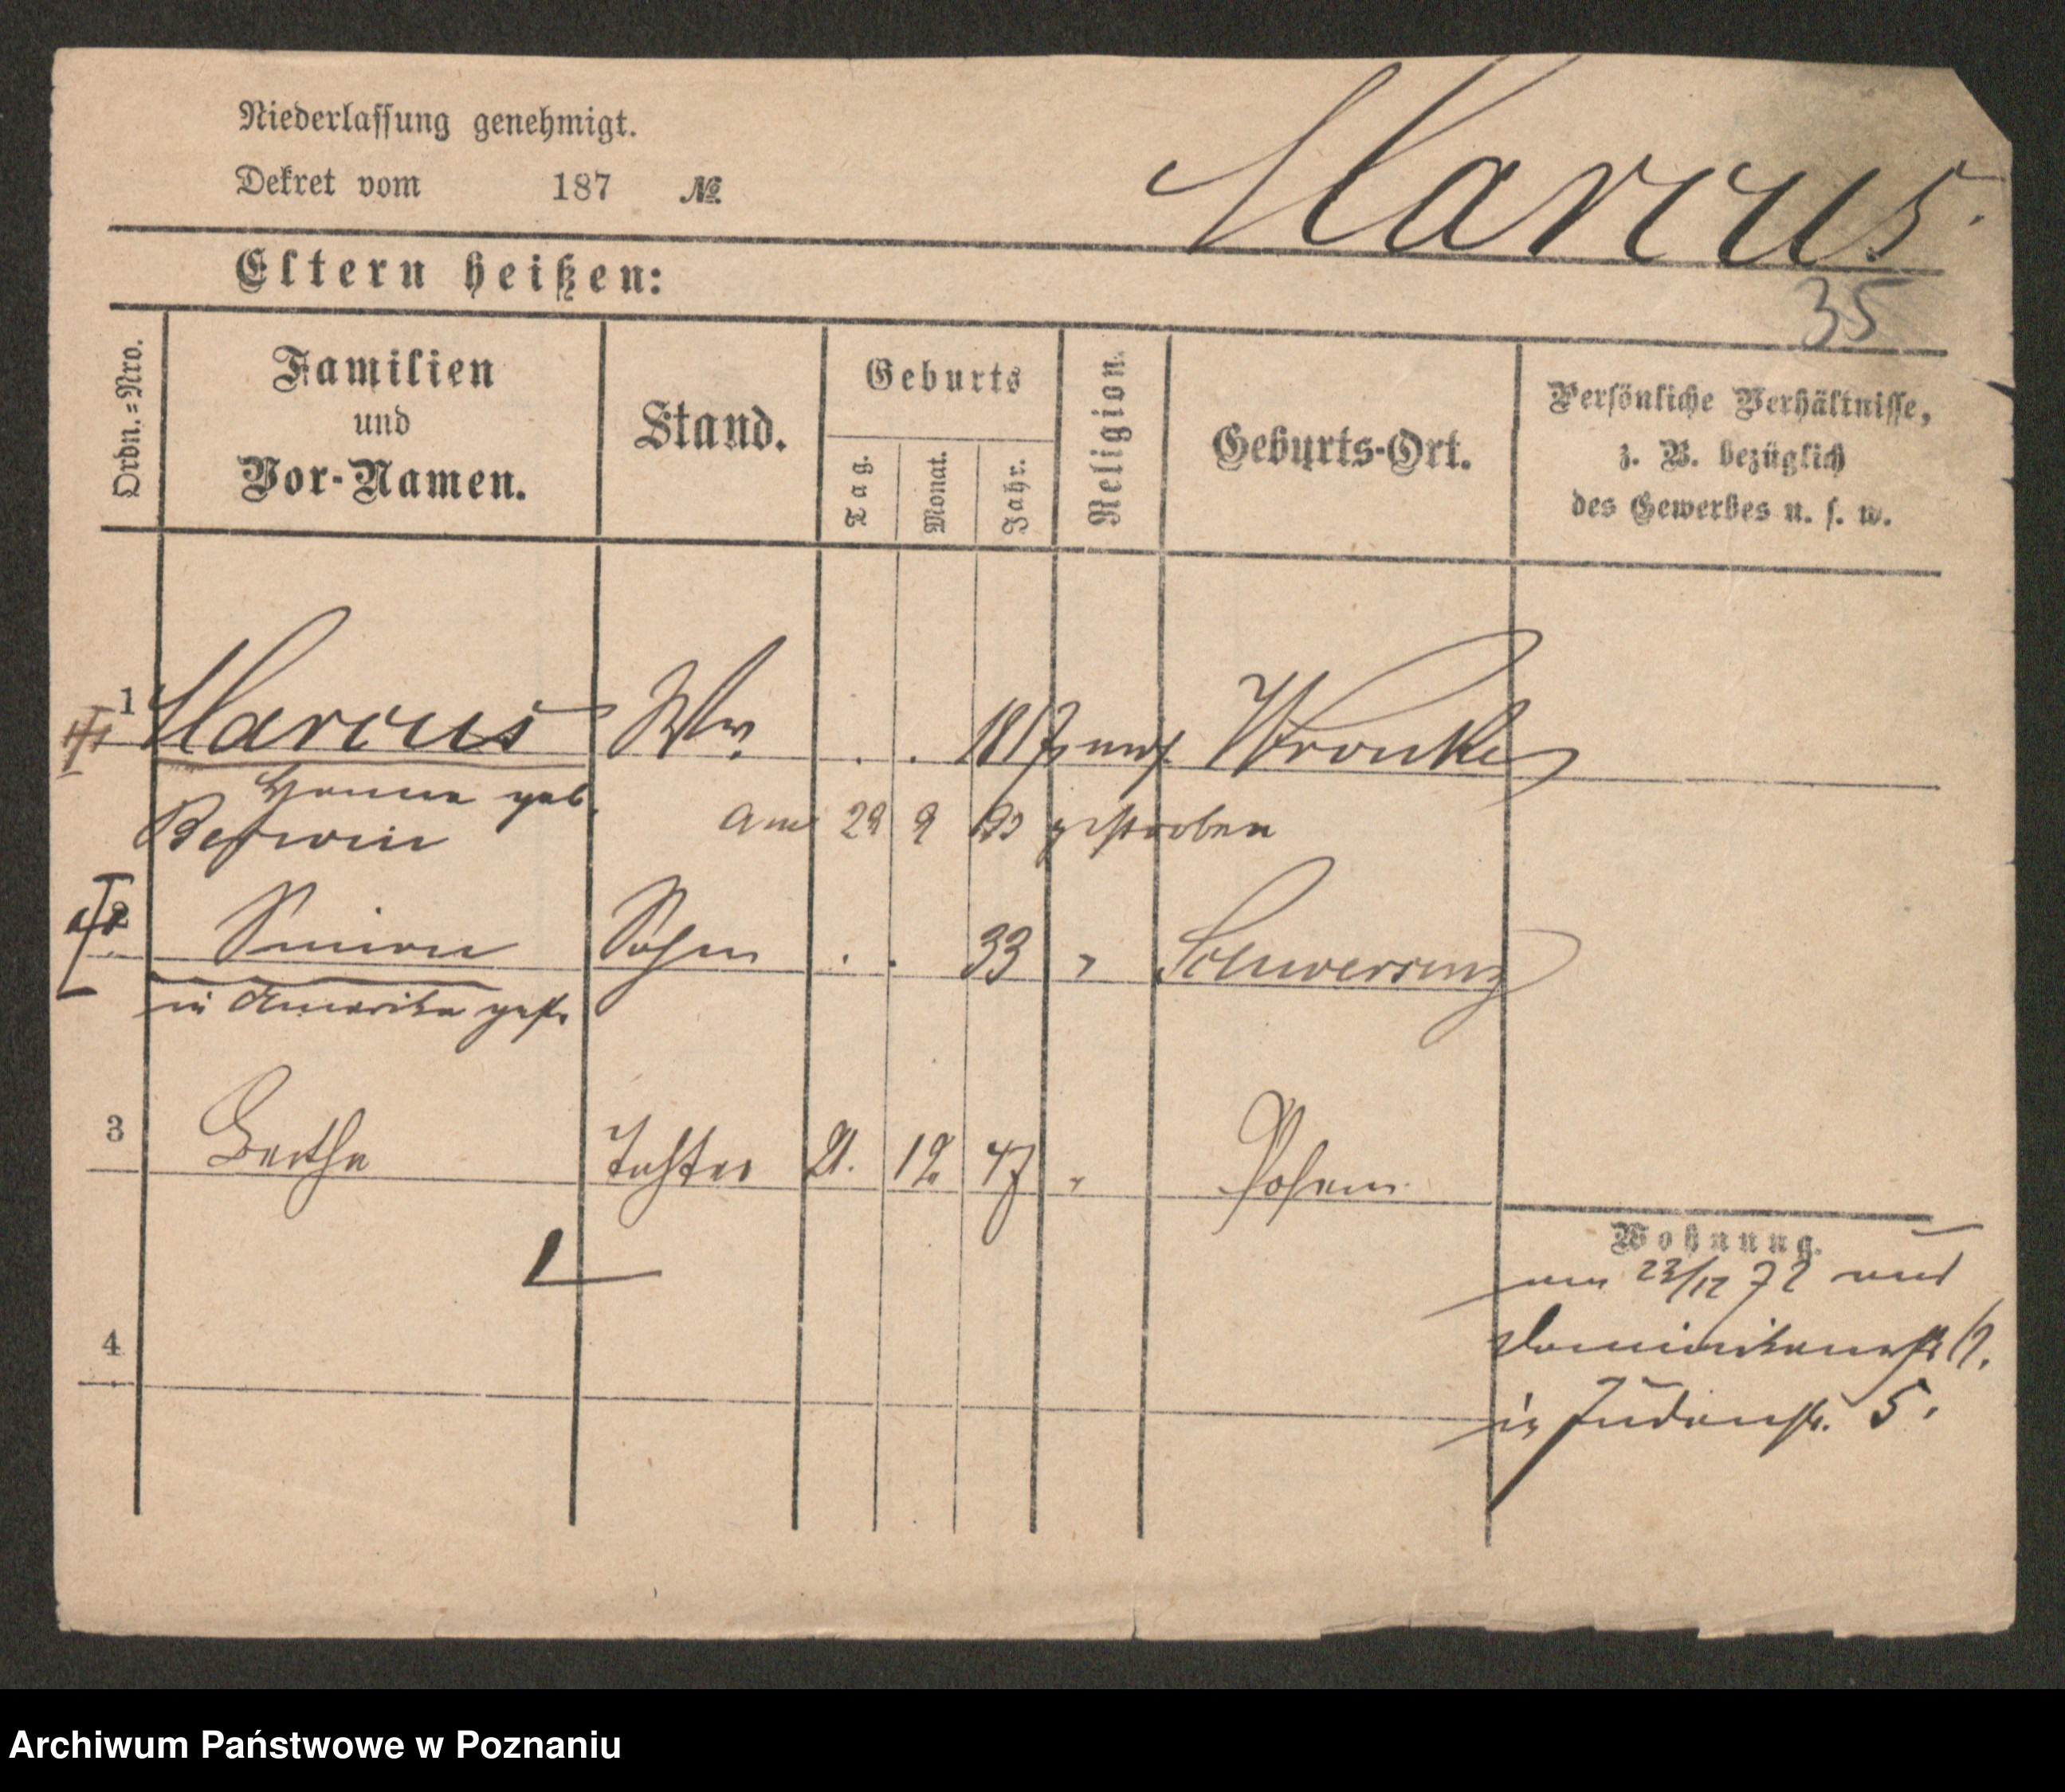 Niederlassung genehmigt.
Dekret vom 187 №
Marcus.
Eltern heißen:
35
Ordn.=Nro.
Familien
und
Vor-Namen.
Stand.
Geburts
Tag.
Monat.
Jahr.
Religion.
Geburts-Ort.
Persönliche Verhältnisse,
z. B. bezüglich
des Gewerbes u. s. w.
1 Marcus Ww. . . 1817 mos. Wronke
Hanna geb.
Berwin
am 29 9 gestorben
2 Simon Sohn . . 33 " Schwersenz
in Amerika gest.
3 Berthe Tochter 21. 12 47 " Posen
Wohnung.
am 23/12 72 aus
Dominikanerstr
in Judenstr. 5.
4
Archiwum Państwowe w Poznaniu